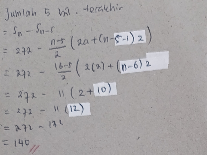 Jumlah 5 hr. terakhir
= Sn - Sn-5
= 272 - n-5/2 (2a + (n-5-1) 2)
= 272 - 16-5/2 (2(2) + (n-6) 2
= 272 - 11 (2 + 10)
= 272 - 11 (12)
= 272 - 132
= 140